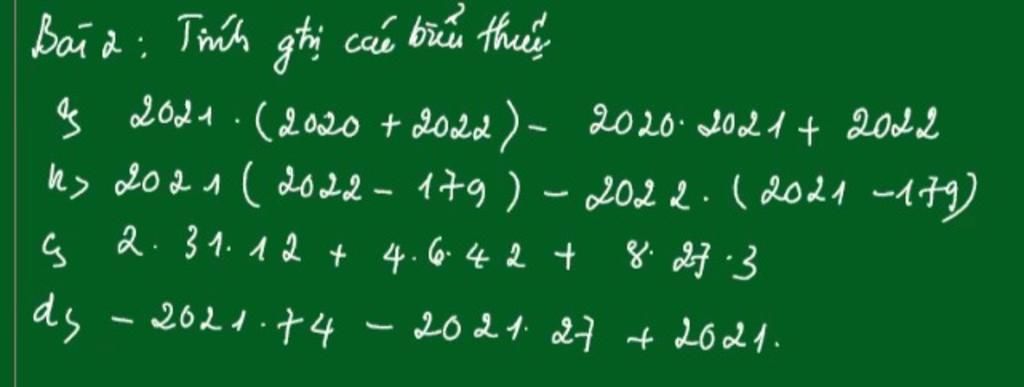 Bài 2: Tính gtrị các biểu thức
a, 2021 . (2020 + 2022) - 2020. 2021 + 2022
b, 2021 ( 2022 - 179 ) - 2022. ( 2021 - 179)
c, 2. 31. 12 + 4. 6. 42 + 8. 27. 3
d, - 2021. 74 - 2021. 27 + 2021.